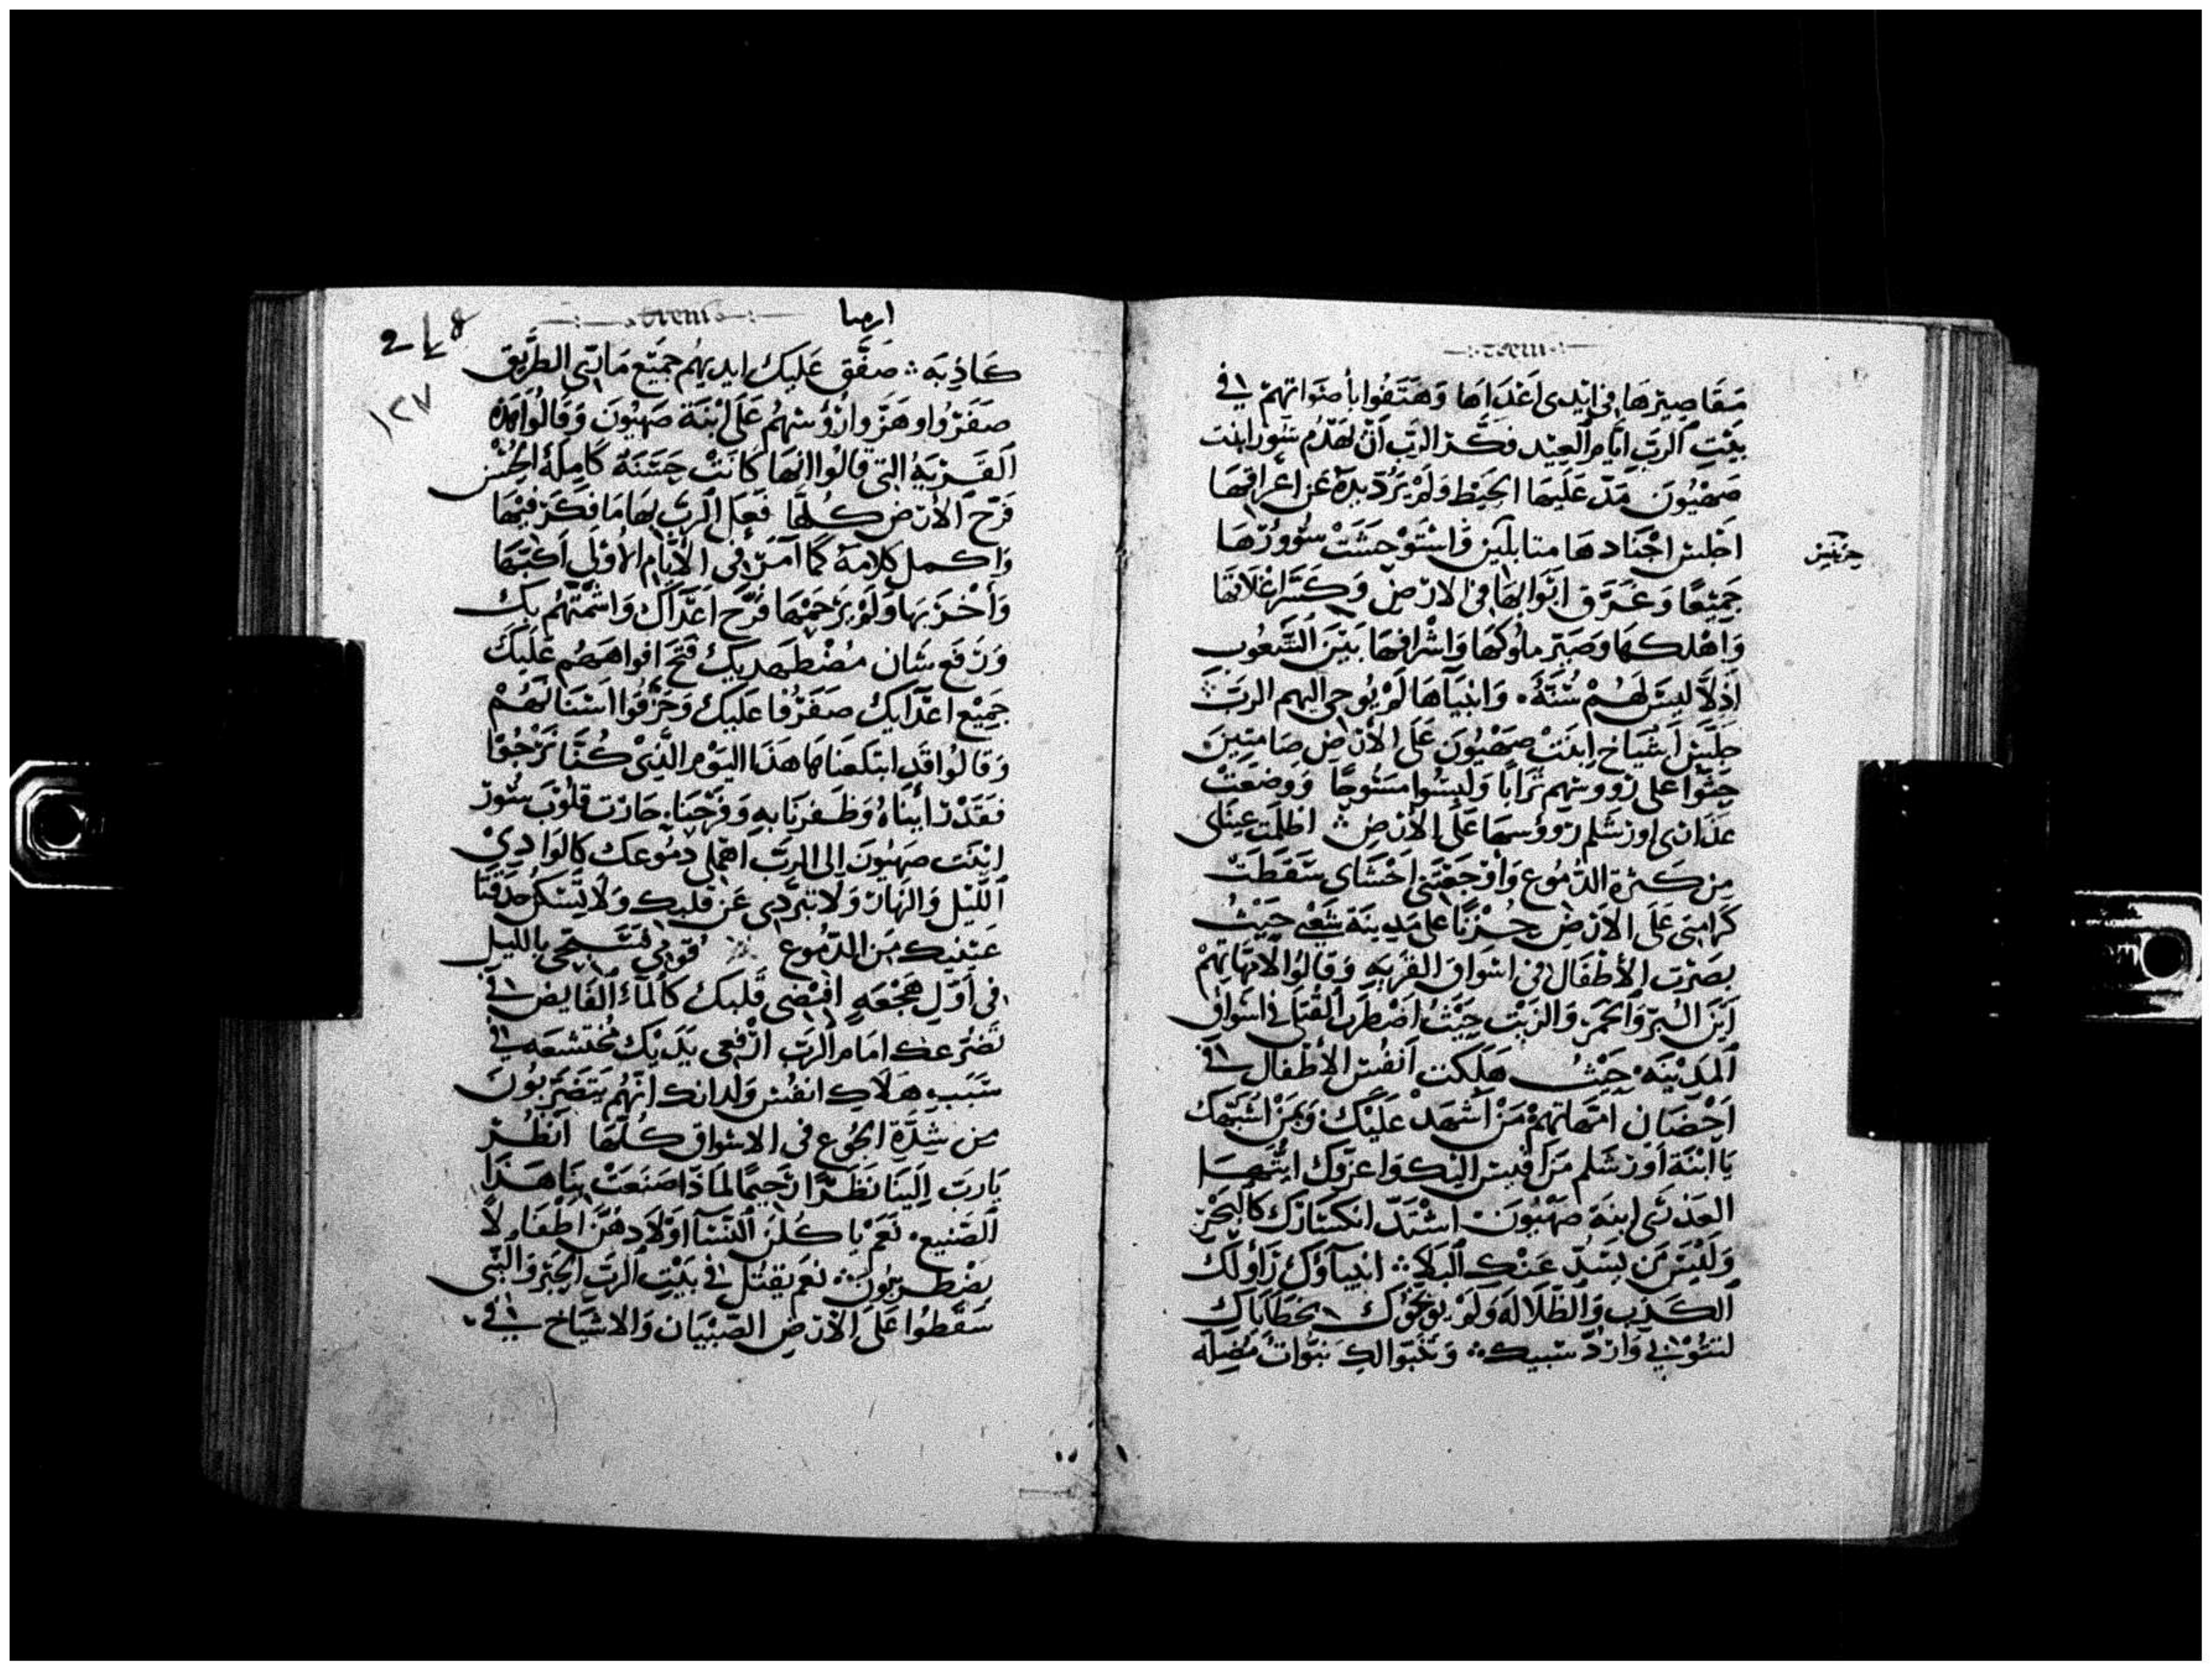 مقاصيرها في ايدى اعداها وهتفوا بأصواتهم في
بيت الرب ايام العيد فكر الرب ان يهدم سور ابنت
صهيون مد عليها الحيط ولم يرد يده عن اعراقها
اجلس اجنادها متابلين واستوحشت سوورها
جميعا وغرق ابوابها في الارض وكسر اغلاقها
واهلكها وصير ملوكها واشرافها بين الشعوب
اذلا ليس لهم سنة وانبياها لم يوحى اليهم الرب
جلس اشياخ ابنت صهيون على الارض صامتين
جثوا على رووسهم ترابا ولبسوا مسوحا ووضعت
عذارى اورشلم رووسها على الارض اظلمت عيناى
من كثرة الدموع واوجعتنى احشاى سقطت
كرامتى على الارض حزنا على مدينة شعبى حيث
بصرت الأطفال في اسواق القرية وقالوا لامهاتهم
اين البر والخمر والزيت حيث اضطرب القتلى في اسواق
المدينه حيث هلكت انفس الأطفال في
احضان امهاتهم من اشهد عليك وبمن اشبهك
يا ابنة اورشلم من اقيس اليك واعزوك ايتها
العذرى ابنة صهيون اشتد انكسارك كالبحر
وليس من يسد عنك البلا انبياوك راولك
الكذب والظلاله ولم يوبخوك بخطاياك
لتتوبي وارد سبيك وتنبوا لك نبوات مضله
ارميا
218
١٢٧
كاذبة صفق عليك ايديهم جميع مارى الطريق
صفروا وهزوا رؤسهم على ابنة صهيون وقالوا هذه
القرية التي قالوا انها كانت حسنة كاملة الحسن
فرح الأرض كلها فعل الرب بها ما فكر فيها
واكمل كلامه كما امر في الأيام الاولى اكبتها
وأخزبها ولم يرحمها فرح اعداك واشمتهم بك
ورفع شان مضطهديك فتح افواههم عليك
جميع اعدايك صفرفا عليك وحزقوا اسنانهم
وقالوا قد ابتلعناها هذا اليوم الذي كنا نرجوا
فقد رايناه وظفرنا به وفرحنا حارت قلوب سور
ابنت صهيون الى الرب اهملى دموعك كالوادي
الليل والنهار ولا تبردى عن قلبك ولا تسكن حدقتا
عينيك من الدموع قومي فسبحى بالليل
في أول هجعه افيضى قلبك كالماء الفايض في
تضرعك امام الرب ارفعى يديك مختشعه في
سبب هلاك انفس ولدانك انهم يتضربون
من شدة الجوع في الاسواق كلها انظر
يارب الينا نظرا رحيما لماذا صنعت بنا هذا
الصنيع نعم يا كلن النسا اولادهن اطفالا
يضطربون نعم يقتل في بيت الرب الحبر والنبى
سقطوا على الأرض الصبيان والاشياخ في